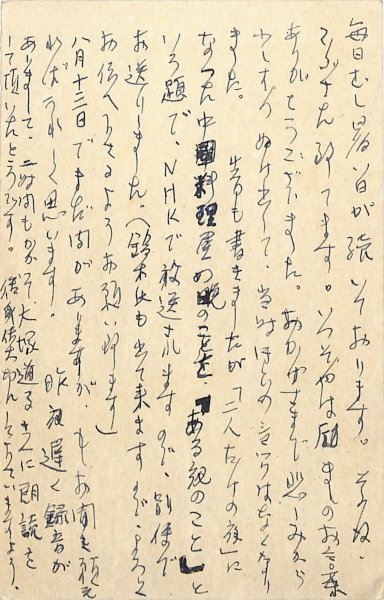 毎日むし暑い日が続いております。その後、
ごぶさた致してます。いつぞやは励ましのお言葉
ありがとうございました。おかげさまで悲しみから
少しずつぬけ出して、当時ほどの はなくなり
ました。 も書きましたが「二人だけの夜」に
なった中国料理屋の晩のことを「ある 」と
いう題で、NHKで放送されますので、別便で
お送りしました。(鈴木氏も出て来ますので、よろしく
お伝え下さるようお願い致します)
八月十三日でまだ間がありますが、もしお聞き願え
ればうれしく思います。 昨夜遅く録音が
ありまして、二時間もかかって大塚道子さんに朗読を
して頂いたところです。